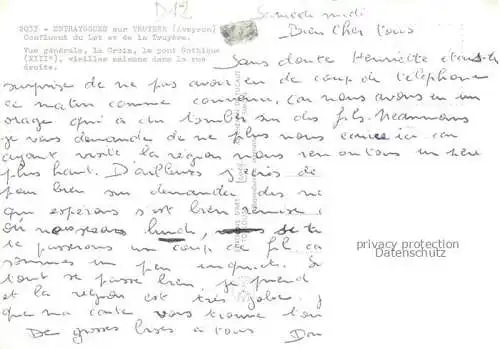 D12
Samedi midi
9033 - ENTRAYGUES sur TRUYERE (Aveyron)
Confluent du Lot et de la Truyère.
Vue générale, la Croix, le pont Gothique
(XIIIe), vieilles maisons dans la rue
droite.
Bien chers tous
Sans doute Henriette
surprise de ne pas avoir eu de coup de téléphone
ce matin comme convenu, car nous avons eu un
orage qui a du tomber sur des fils. Néanmoins
je vous demande de ne plus nous écrire ici car
ayant visité la région nous remontons un peu
plus haut. D'ailleurs j'écris de
pour bien sur demander des
qui espérons s'est bien remise
où nous serons lundi, je te
passerons un coup de fil, ca
sommes un peu inquiet. Si
tout se passe bien, je prend
et la région est très jolie. J
que ma carte vous trouve tou
De grosses bises à tous
privacy protection
Datenschutz